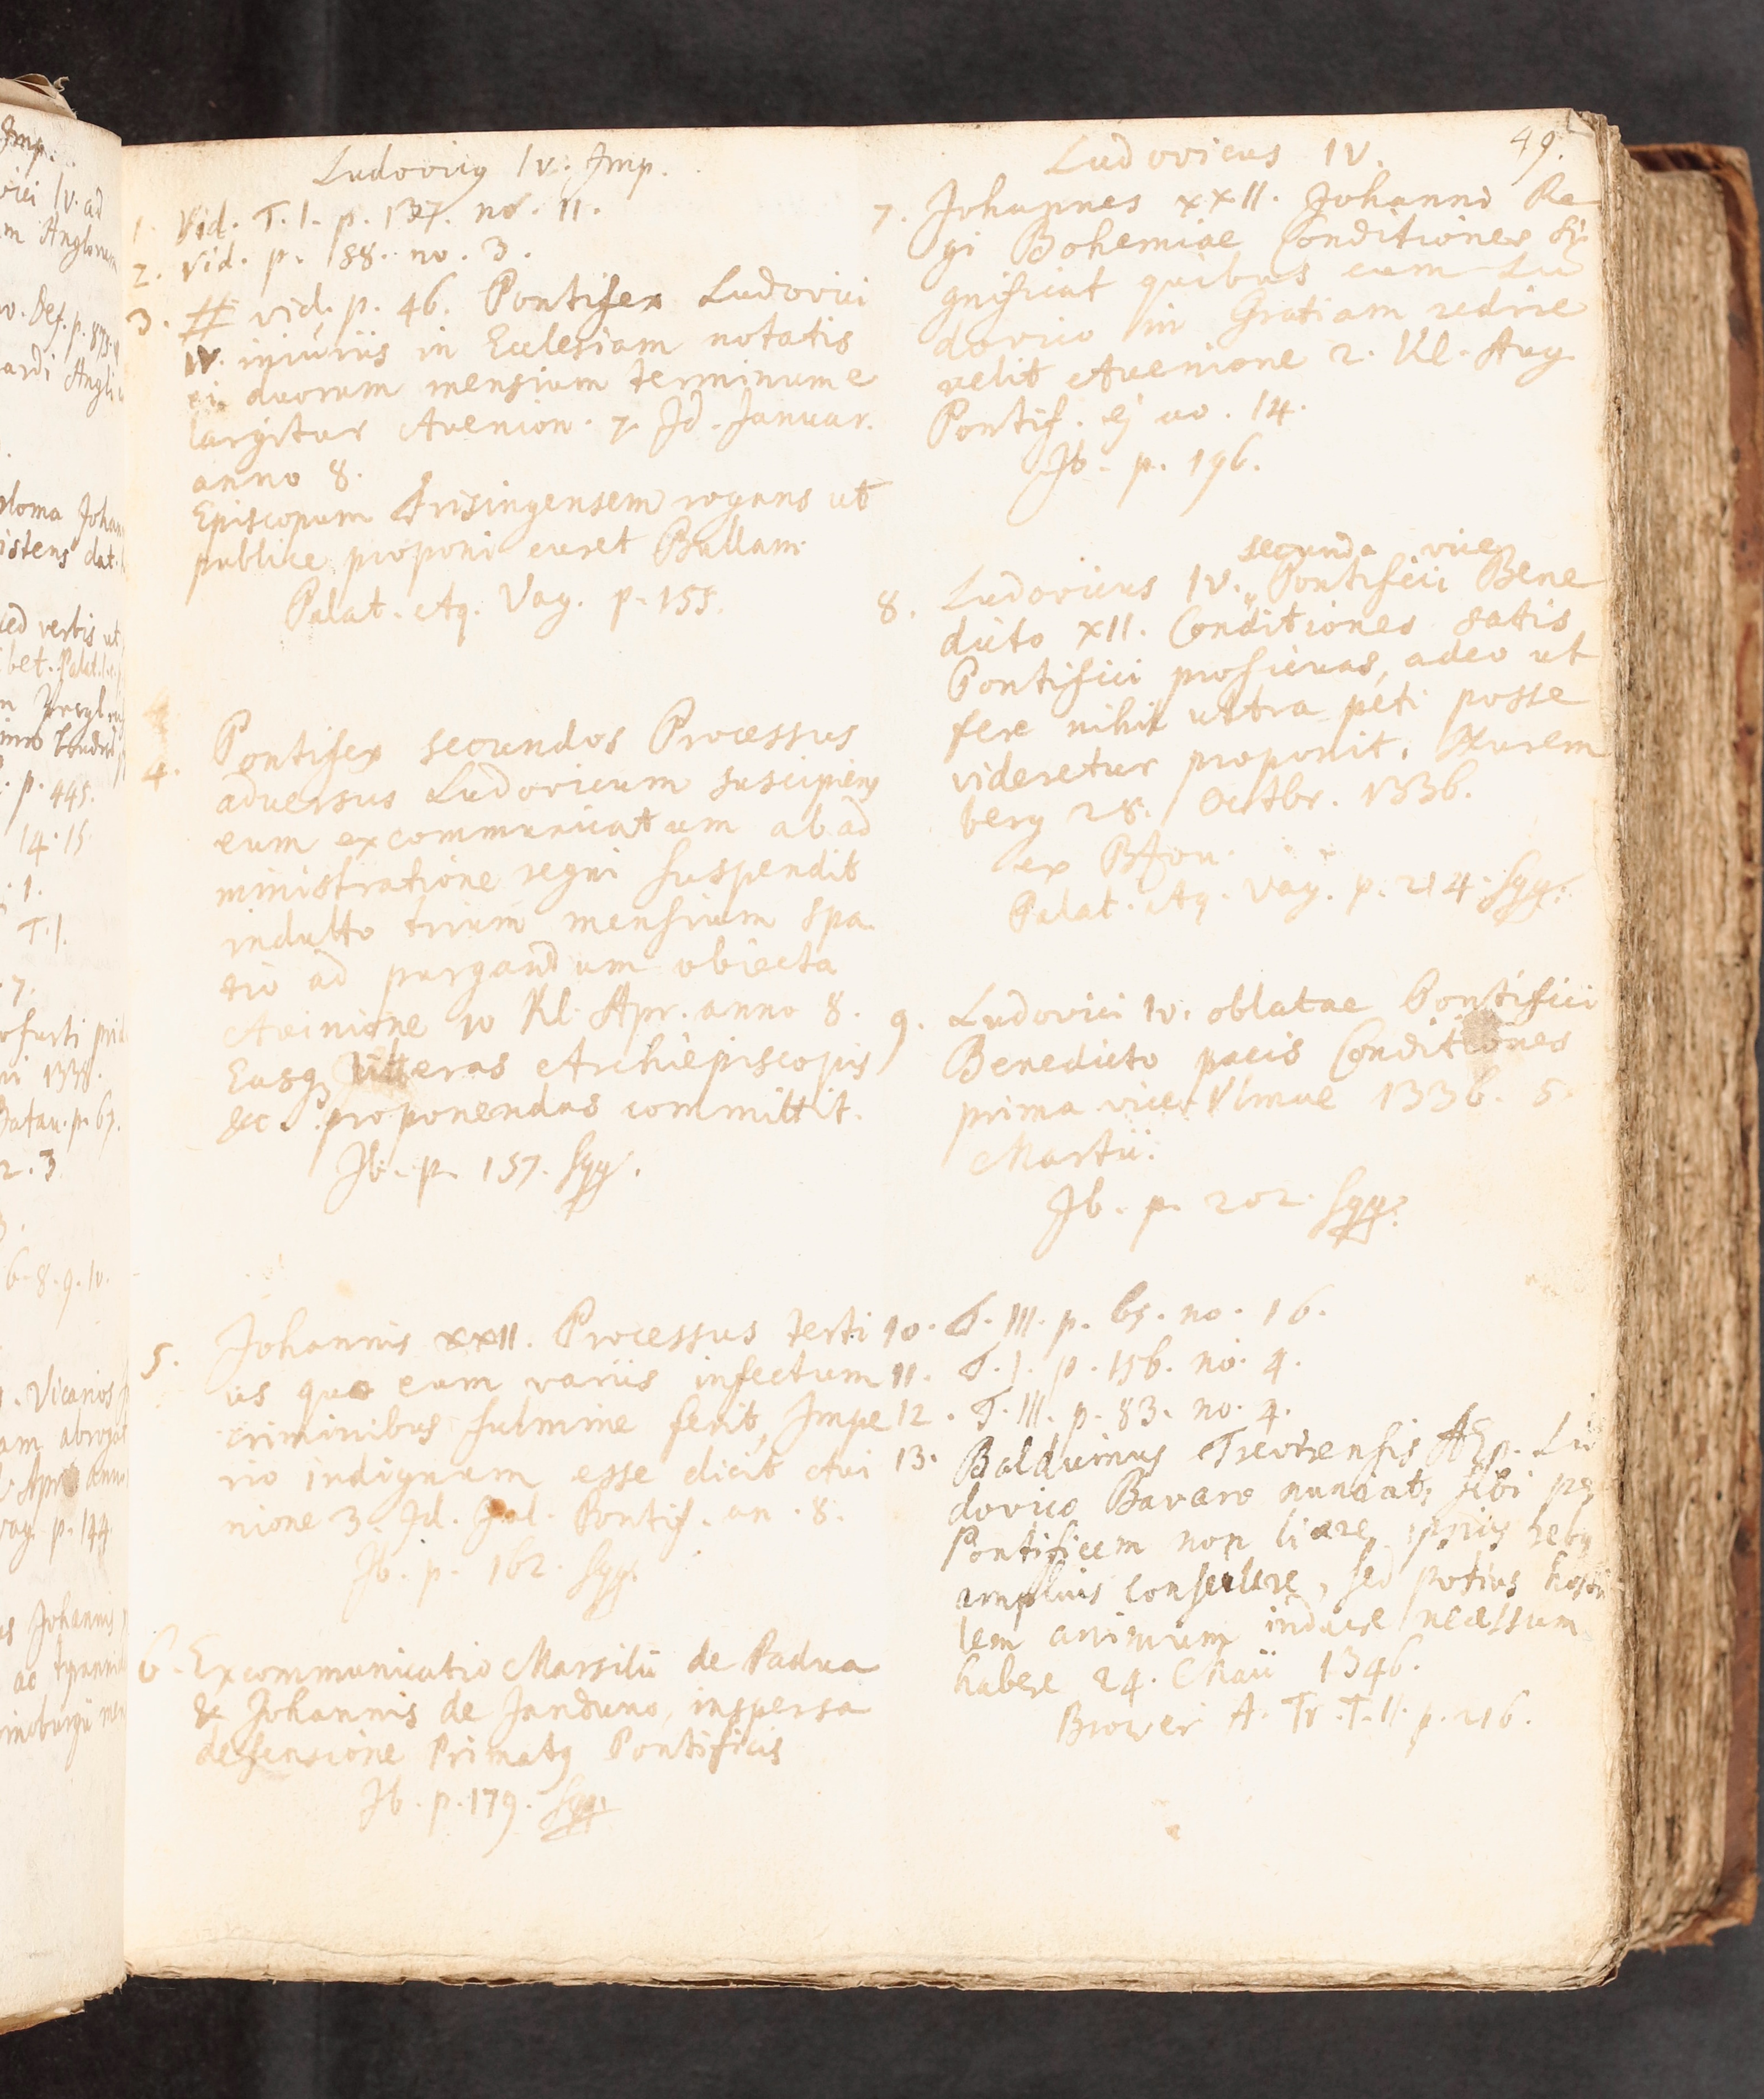 Ludovicus IV. Imp.
1. Vid. T. I. p. 137. no. 11.
2. Vid. p. 188. no. 3.
3. # vid. p. 46. Pontifex Ludovici
IV. iniuriis in Ecclesiam notatis
ei duorum mensium terminum e
largitur Avenion. 7. Id. Januar.
anno 8.
Episcopum Frisingensem rogans ut
publice proponi curet Bullam
Palat. Aq. Vag. p. 155.
4. Pontifex secundos Processus
adversus Ludovicum suscipiens
eum excommunicatum ab ad
ministratione regni suspendit
indulto trium mensium spa
tio ad purgandum obiecta
Avinione 10 Kl. Apr. anno 8.
Easq; litteras Archiepiscopis
&c. proponendas committit.
Ib. p. 157. sqq.
5. Johannis XXII. Processus terti
us quo eum variis infectum
criminibus fulmine ferit, Impe
rio indignum esse dicit Avi
nione 3. Id. Jul. Pontif. an. 8.
Ib. p. 162. sqq.
6. Excommunicatio Marsilii de Padua
& Johannis de Janduno, inspersa
defensione Primatus Pontificis
Ib. p. 179. sqq.
49.
Ludovicus IV.
7. Johannes XXII. Johanni Re
gi Bohemiae Conditiones si
gnificat quibus cum Lu
dovico in Gratiam redire
velit Avenione 2. Kl. Aug.
Pontif. ej ao. 14.
Ib. p. 196.
secunda vice
8. Ludovicus IV. Pontifici Bene
dicto XII. Conditiones satis
Pontifici proficuas, adeo ut
fere nihil ultra peti posse
videretur proponit. Nurem
berg 28. Octbr. 1336.
ex
Palat. Aq. Vag. p. 214. sqq.
9. Ludovici IV. oblatae Pontifici
Benedicto pacis Conditiones
prima vice Ulmae 1336. 5.
Martii.
Ib. p. 202. sqq.
10. T. III. p. 65. no. 16.
11. T. I. p. 156. no. 4.
12. T. III. p. 83. no. 4.
13. Balduinus Trevirensis AEp. Lu
dovico Bavaro nunciat, sibi
Pontificem non licere, ipsius
amplius consulere, sed potius hosti
lem animum induere necessum
habere 24. Maii 1346.
Brower A. Tr. T. II. p. 216.